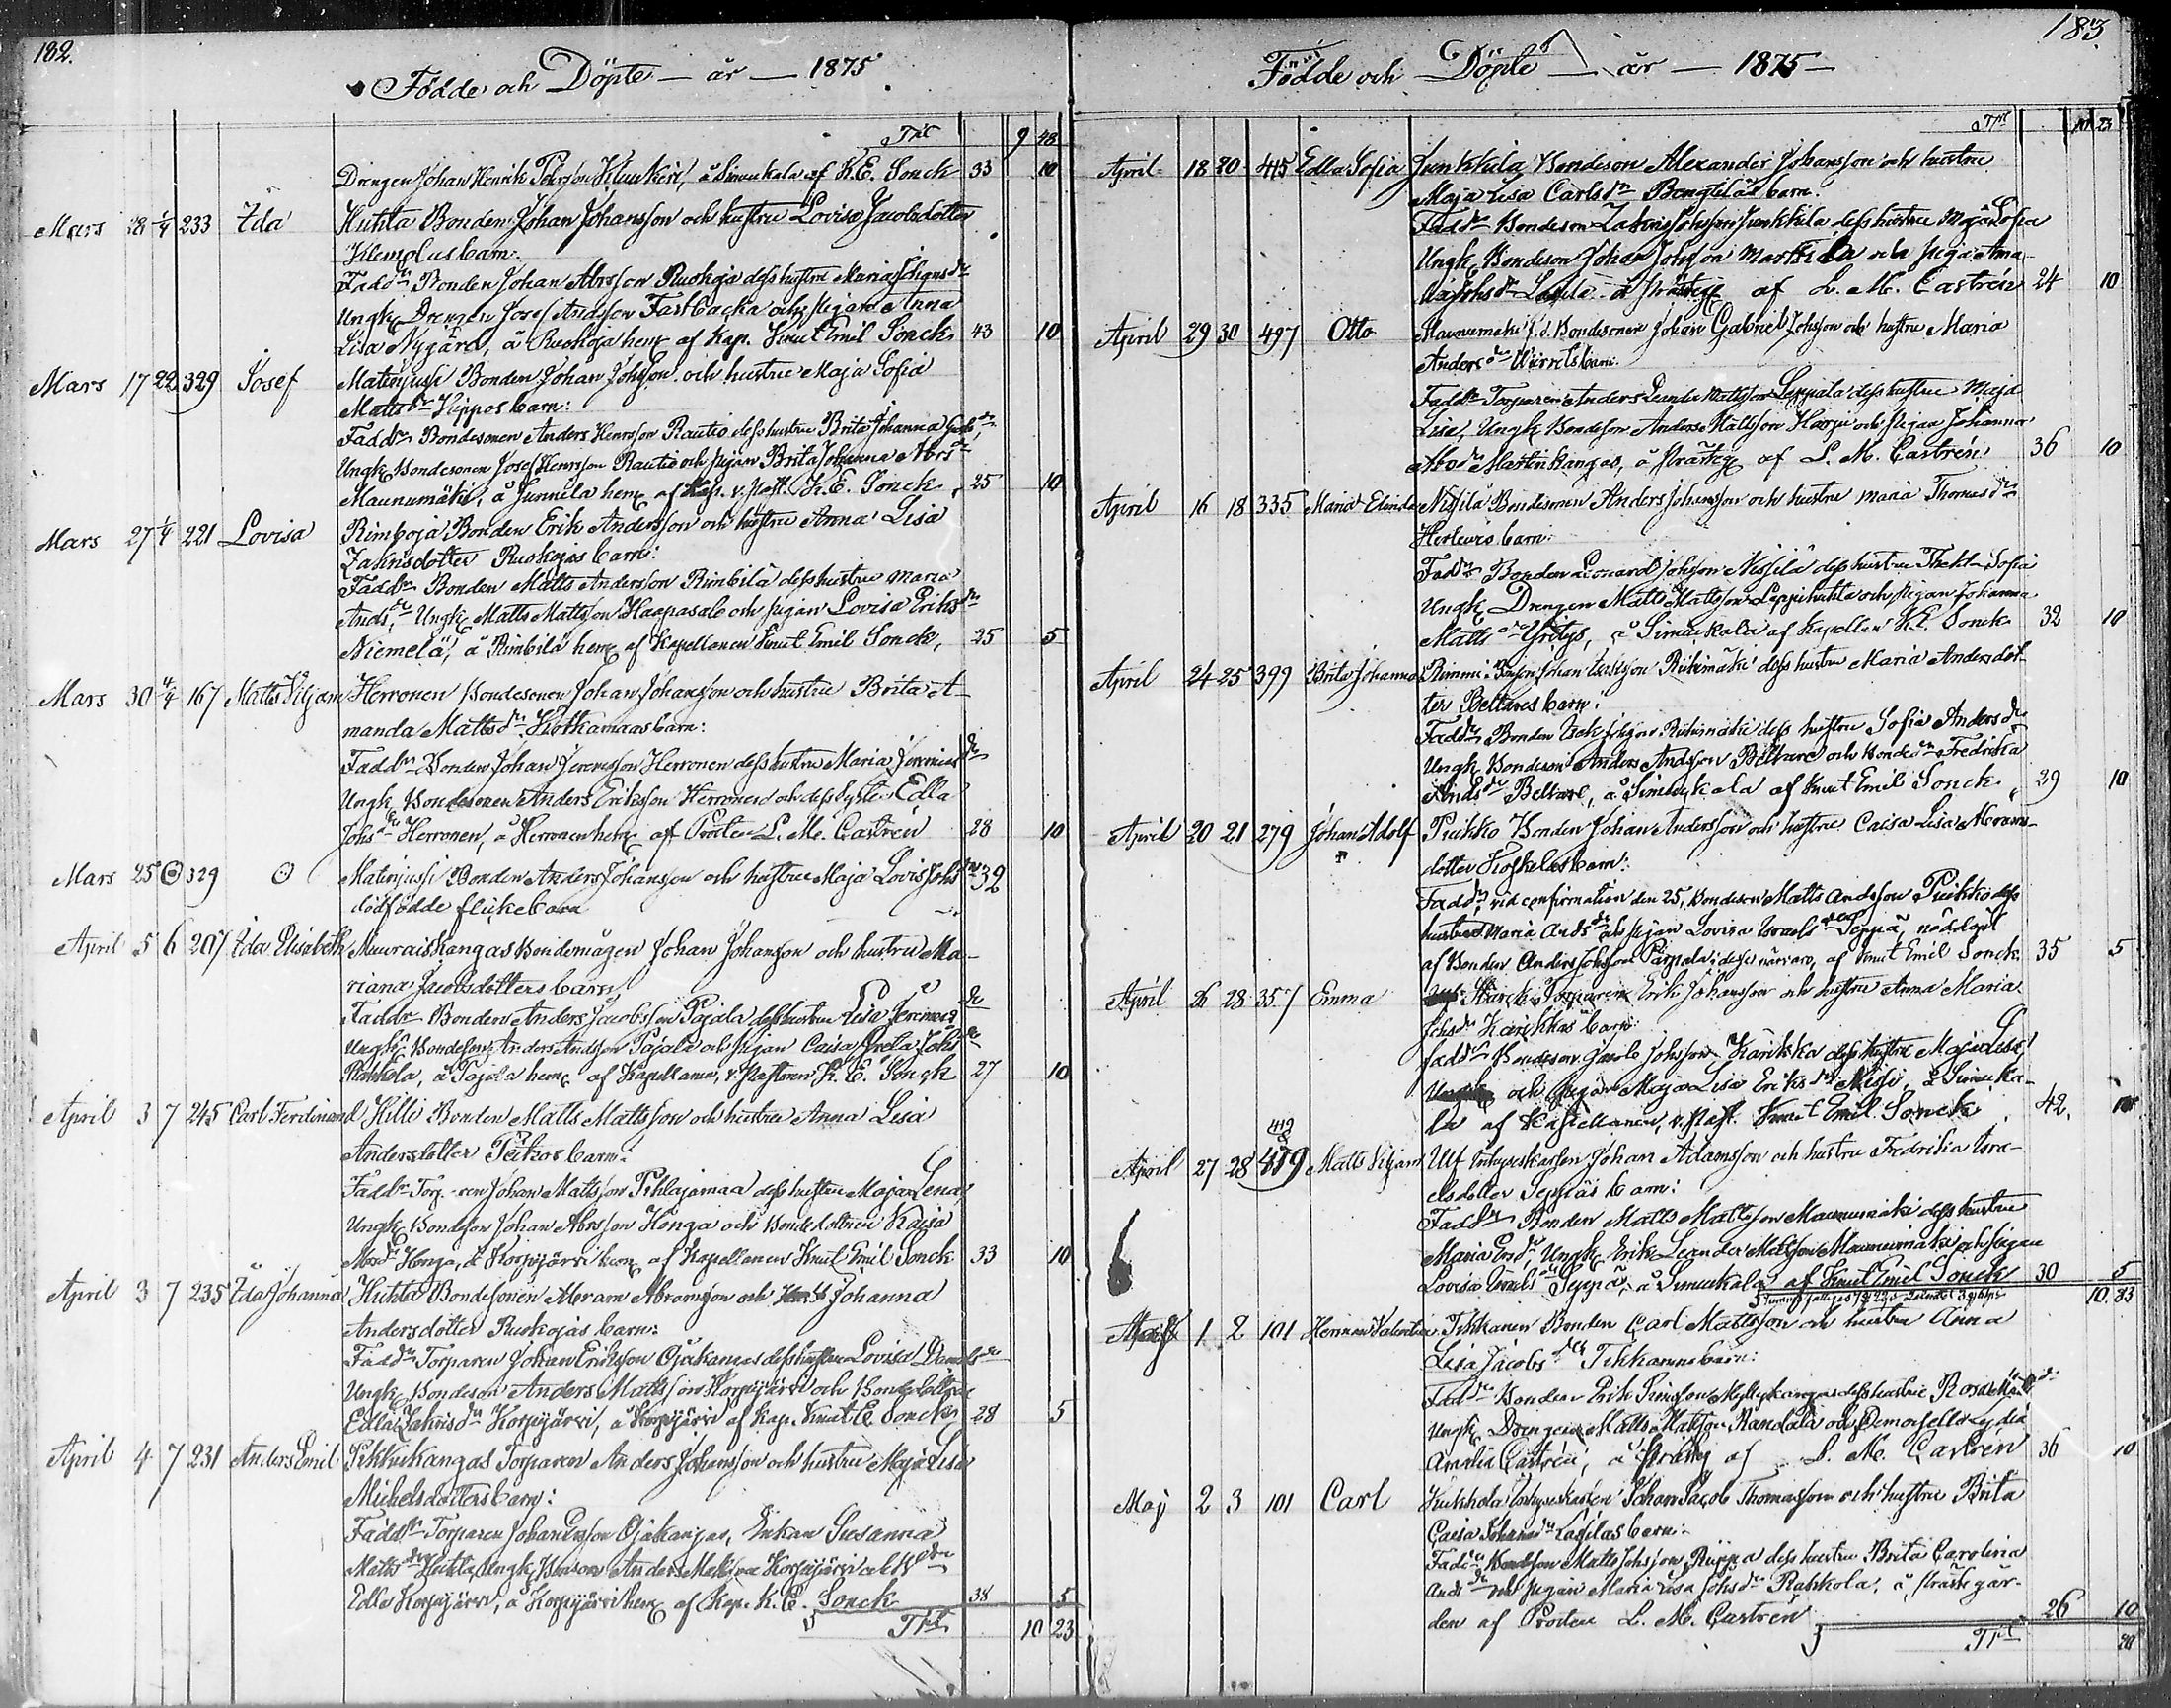 182.
Födde och Döpte — år — 1875
Trt 9 48
Drengen Johan Henrik å Simukala af K. E. Sonck 33 10
Mars 28 1/4 233 Ida Huhta Bonden Johan Johansson och hustru Lovisa Jacobsdotter
Klemolas barn:
Fadd Bonden Johan Abrsson Ruokoja dess hustru Maria
Ungk Drengen Josef Andsson Fastbacka och pigan Anna
Lisa Nygård, å Ruokoja hem af Kap. Knut Emil Sonck 43 10
Mars 17 22 329 Josef Matinjussi Bonden Johan Johsson och hustru Maja Sofia
Matts dr Kippos barn:
Fadd Bondesonen Anders Henrsson Rautio dess hustru Brita Johanna
Ungk Bondesonen Josef Henrsson Rautio och pigan Brita Johanna Abrs dr
Maunumäki, å Junnila hem af Kap. v. Past. K. E. Sonck 25 10
Mars 27 1/4 221 Lovisa Rimboja Bonden Erik Andersson och hustru Anna Lisa
Zakrisdotter Ruokojas barn:
Fadd Bonden Matts Andersson Rimbilä dess hustru Maria
Ands dr Ungk Matts Mattsson Haapasalo och pigan Lovisa Eriks dr
Niemelä, å Rimbilä hem af Kapellanen Knut Emil Sonck, 25 5
Mars 30 4/4 167 Matts Viljam Herronen Bondesonen Johan Johansson och hustru Brita A-
manda Matts dr Kotkamaas barn:
Fadd Bonden Johan Jeremsson Herronen dess hustru Maria Jeremias dr
Ungk Bondesonen Anders Eriksson Herronen och dess Syster Edla
Johs dr Herronen, å Herronen hem af Prosten L. M. Castrén 28 10
Mars 25 329 Matinjussi Bonden Anders Johansson och hustru Maja Lovis Johs dr 32
dödfödde flickebarn
April 5 6 207 Ida Elisabeth Muuraiskangas Bondemågen Johan Johansson och hustru Ma-
riana Jacobsdotters barn,
Fadd Bonden Anders Jacobsson Pajala dess hustru Lisa Jeremias dr
Ungk Bondeson Anders Andsson Pajala och pigan Caisa Greta Johs dr
Rahkola, å Pajala hem af Kapellanen, v. Pastoren K. E. Sonck 27 10
April 3 7 245 Carl Ferdinand Killi Bonden Matts Mattsson och hustru Anna Lisa
Andersdotter barn:
Fadd Torparen Johan Mattsson Pihlajamaa dess hustru Maja Lena,
Ungk Bondeson Johan Abrsson Honga och Bondedottren Kaisa
Honga, å Korpijärvi hem af Kapellanen Knut Emil Sonck 33 10
April 3 7 235 Ida Johanna Huhta Bondesonen Abram Abramsson och Johanna
Andersdotter Ruokojas barn:
Fadd Torparen Johan Eriksson Ojakangas dess hustru Lovisa Daniels dr
Ungk Bondeson Anders Mattsson Korpijärvi och Bondedottren
Edla Zakris dr Korpijärvi, å Korpijärvi af Kap. Knut E. Sonck 28 5
April 4 7 231 Anders Emil Pihkukangas Torparen Anders Johansson och hustru Maja Lisa
Michelsdotters barn:
Fadd Torparen Johan Ersson Ojakangas, Enkan Susanna
Matts dr Huhta, Ungk Bonson Anders Mattsson Korpijärvi och
Edla Korpijärvi, å Korpijärvi hem af Kap. K. E. Sonck 38 5
Trt 10 23
183
Födde och Döpte — år — 1875 —
Trt 10 23
April 18 20 415 Edla Sofia Junkkila Bondeson Alexander Johansson och hustru
Maja Lisa Carls dr Bengtiläs barn.
Fadd Bondeson Zakris Johsson Junkkila dess hustru Maja Sofia
Ungk Bondeson Johan Johsson Markkila och pigan Anna
å Prästg af L. M. Castrén 24 10
April 29 30 497 Otto Maunumäki f. d. Bondesonen Johan Gabriel Johsson och hustru Maria
Anders dr barn
Fadd Torparen Anders Leander Mattsson Leppälä dess hustru Maja
Lisa, Ungk Bondeson Anders Mattsson Harju och pigan Johanna
Abr dr Martinkangas, å Prästg af L. M. Castrén 36 10
April 16 18 335 Maria Elinda Nissilä Bondesonen Anders Johansson och hustru Maria Thomas dr
Herlevis barn:
Fadd Bonden Leonard Johsson Nissilä dess hustru Thekla Sofia
Ungk Drengen Matts Mattsson Leppihuhta och pigan Johanna
Matts dr Yritys, å Simukala af Kapellan K. E. Sonck 32 10
April 24 25 399 Brita Johanna Rimmi Johan Isaksson Riihimäki dess hustru Maria Andersdot-
ter Beltares barn:
Fadd Bonden Isak Johsson Riihimäki dess hustru Sofia Anders dr
Ungk Bondeson Anders Andsson Beltare och Fredrika
Ands dr Beltare, å Simukala af Knut Emil Sonck 29 10
April 20 21 279 Johan Adolf Puikko Bonden Johan Andersson och hustru Caisa Lisa Abrams-
dotter Koskelas barn:
Fadd, vid confirmation den 25, Bondeson Matts Andsson Puikko dess
hustru Maria Ands dr och pigan Lovisa Israels dr Seppä, nöddöpt
af Bonden Anders Johsson i dess närvaro, af Knut Emil Sonck 35 5
April 26 28 357 Emma Torparen Erik Johansson och hustru Anna Maria
Johs dr Karikkas barn:
Fadd Bondeson Jacob Johsson Karikka dess hustru Maja Lisa,
och pigan Maja Lisa Eriks dr Nissi, å Simuka-
la af Kapellanen, v. Past. Knut Emil Sonck 42.
419
April 27 28 479 Matts Viljam Ulf Inhyseskarlen Johan Adamsson och hustru Fredrika Isra-
elsdotter Seppäs barn:
Fadd Bonden Matts Mattsson Maunumäki dess hustru
Maria Ers dr Ungk Erik Leander Mattsson Maunumäki och pigan
Lovisa Israels dr Seppä, å Simukala af Knut Emil Sonck 30 5
10. 83
Maj 1 2 101 Herman Valentin Tihkanen Bonden Carl Mattsson och hustru Anna
Lisa Jacobs dr Tihkanens barn:
Fadd Bonden Erik Myllykangas dess hustru Rosa
Ungk Drengen Matts Mattsson Randala och Demoiselle Lydia
Amalia Castrén, å Prästg af L. M. Castrén 36 10
Maj 2 3 101 Carl Kukkola Inhyseskarlen Johan Jacob Thomasson och hustru Brita
Caisa Johans dr Lassilas barn:
Fadd Bondeson Matts Johsson Ruppa dess hustru Brita Carolina
Ands dr och pigan Maria Lisa Johs dr Rahkola, å Prästgår-
den af Prosten L. M. Castrén 26 10
Trt 20